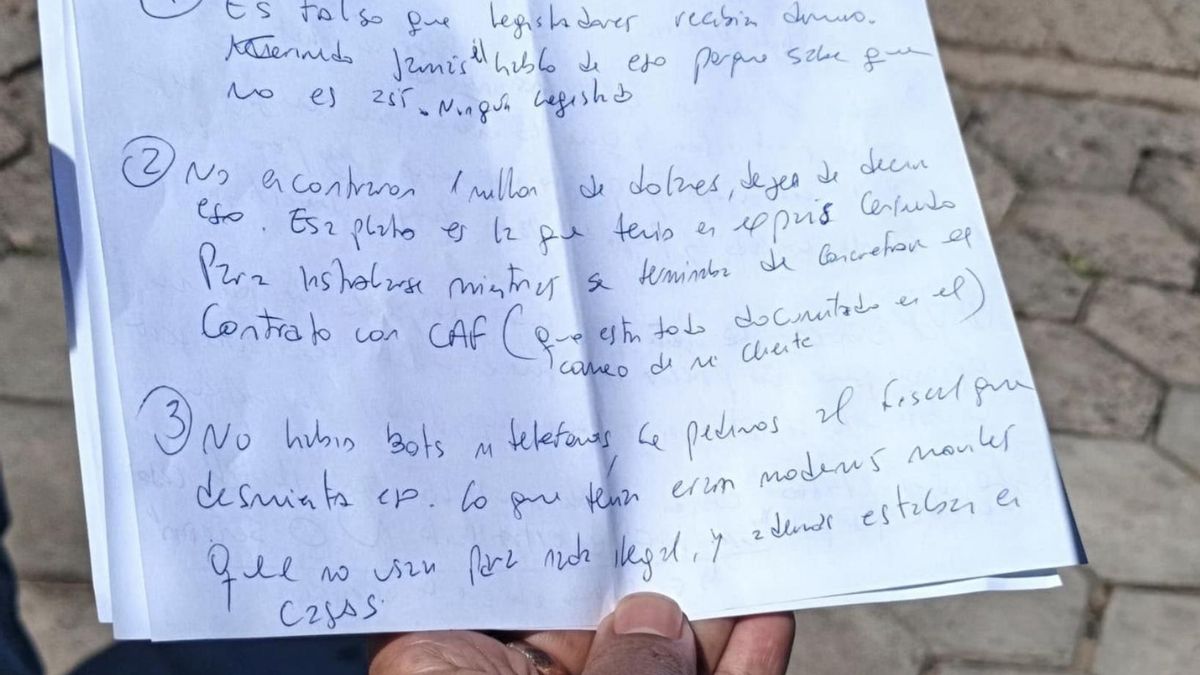 1 Es falso que legisladores recibian dinero.
jamás él hablo de eso porque sabe que
no es así. Ningún legislad
2 No encontraron 1 millon de dolares, dejen de decir
eso. Esa plata es la que tenia en el pais
Para instalarse mientras se terminaba de concretar el
Contrato con CAF (que esta todo documentado en el)
correo de mi cliente
3 No habia Bots ni telefonos, le pedimos al fiscal que
desmienta eso. Lo que tenia eran modems moviles
Que no usan para nada ilegal, y además estaban en
Cajas.